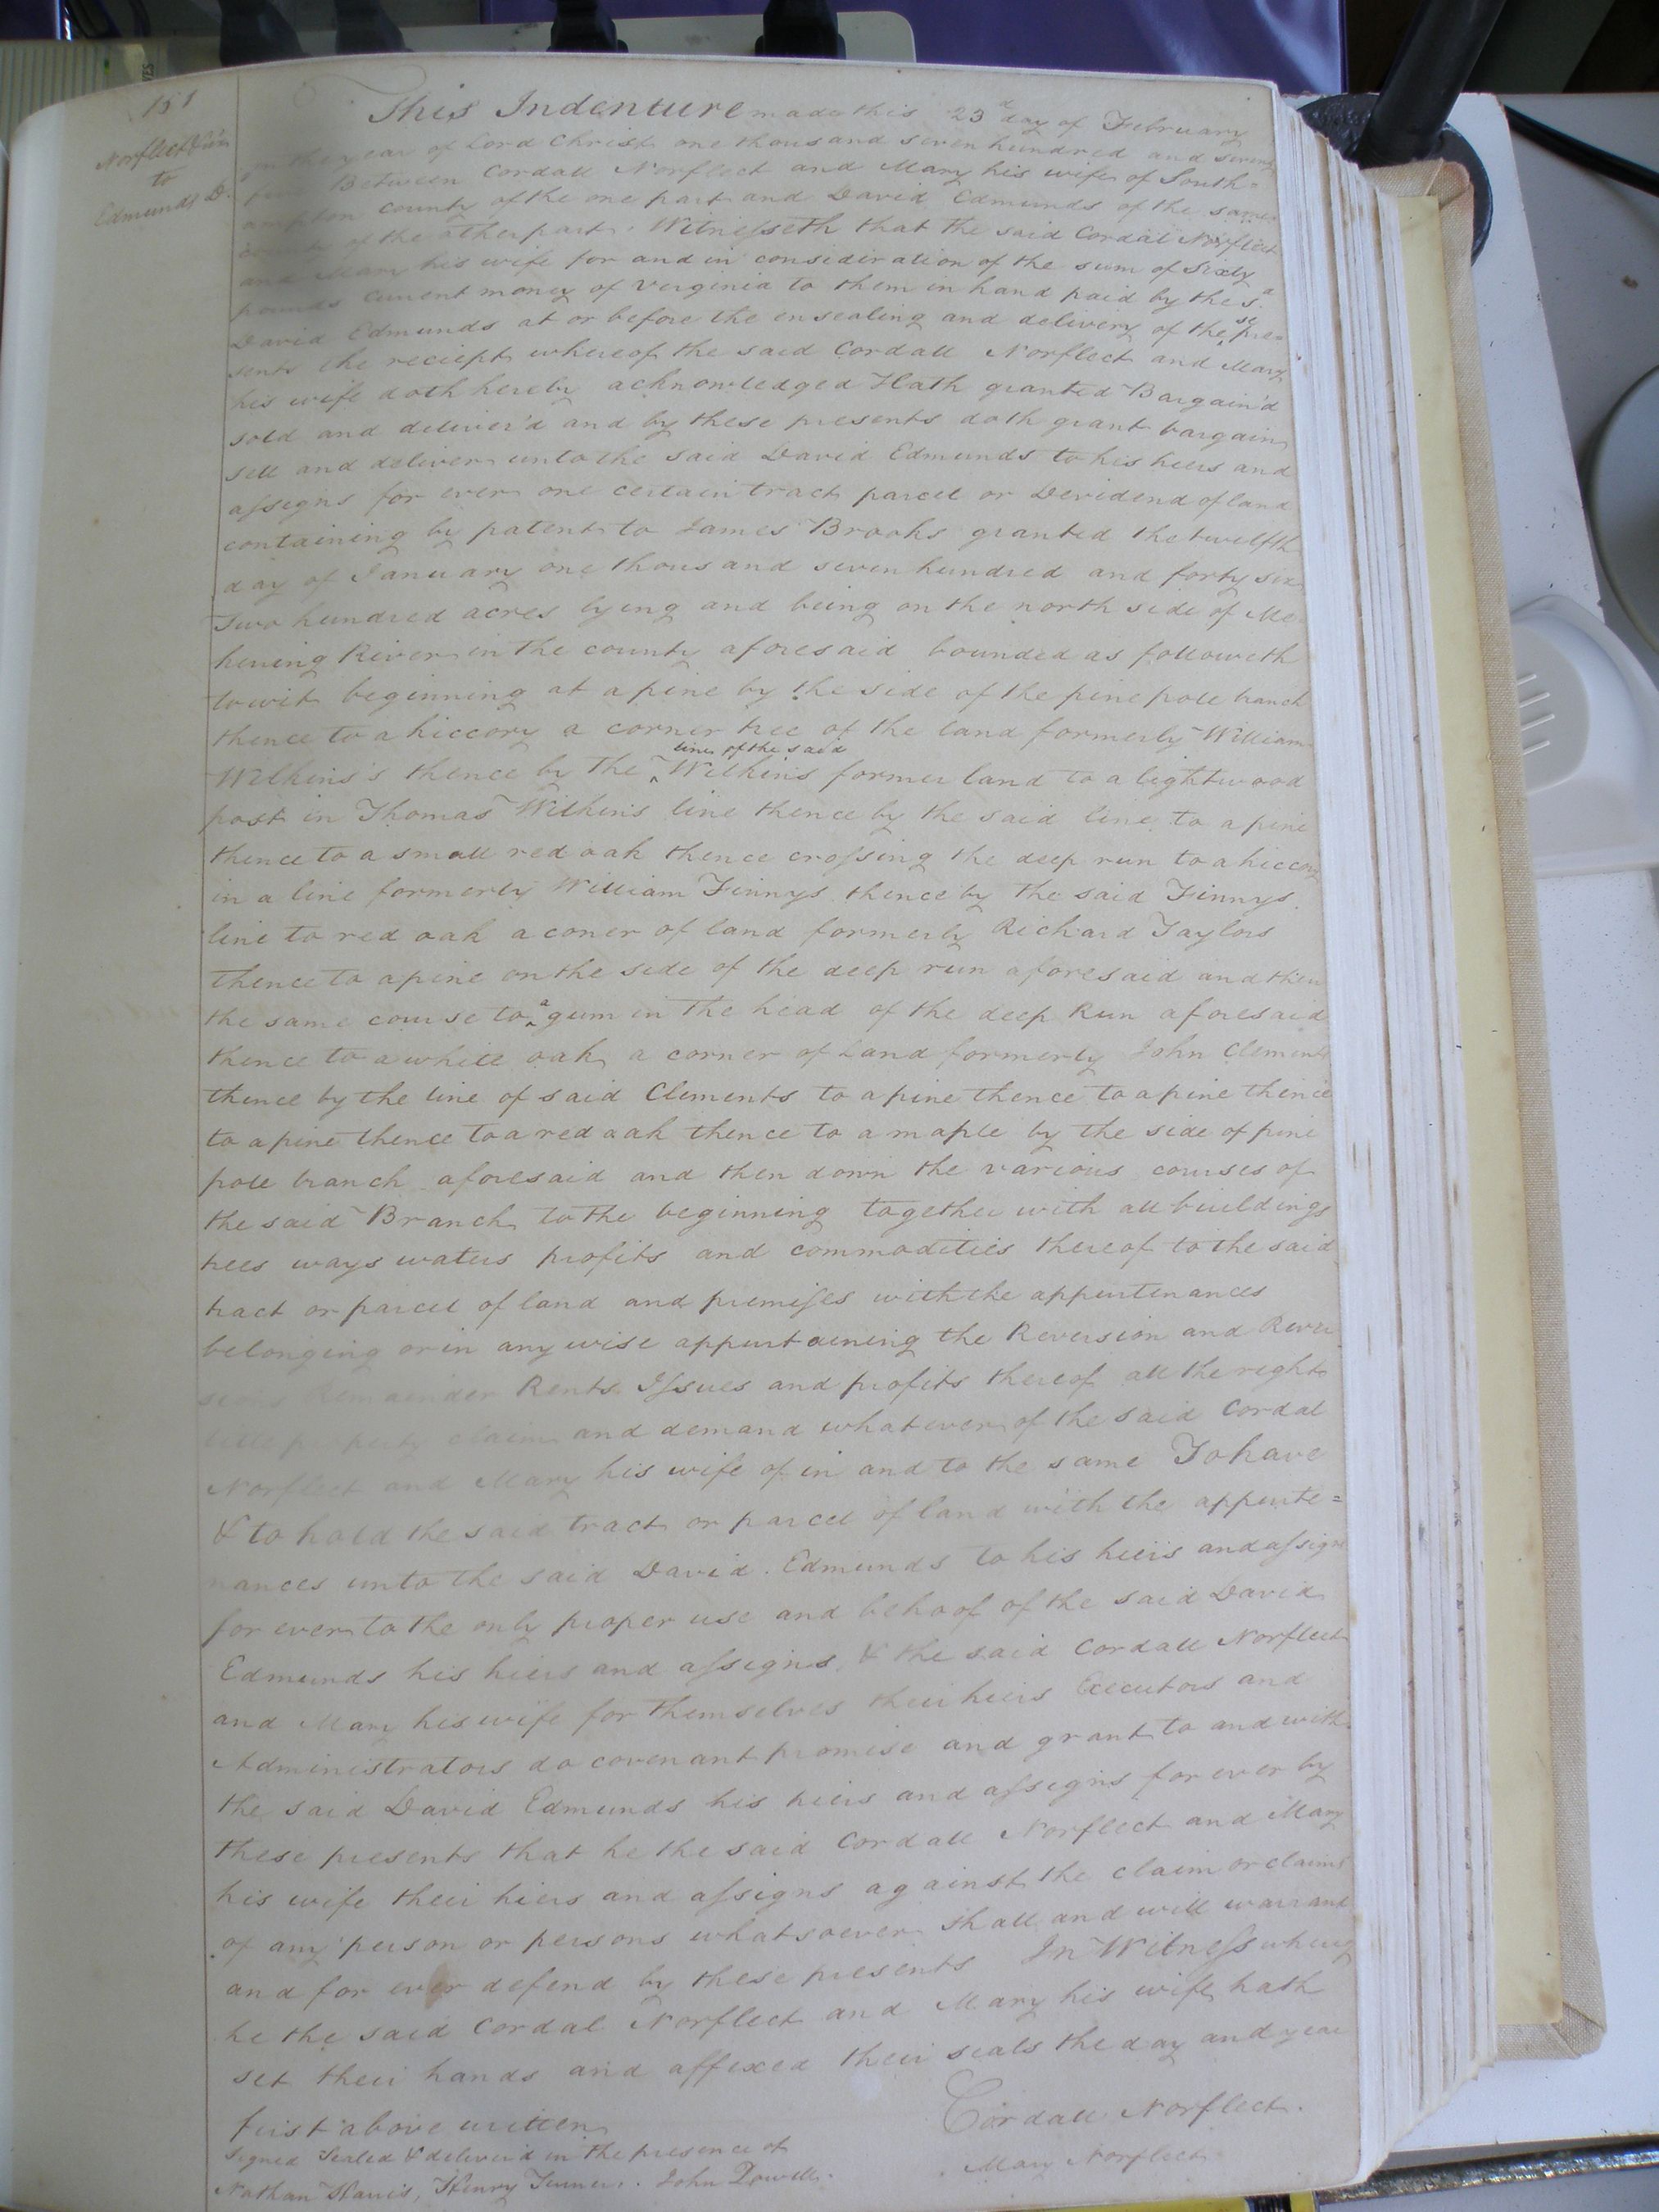 151
Norfleet
to
Edmunds D.
This Indenture made this 23d day of February
in the year of Lord Christ one thousand seven hundred and seventy
Between Cordall Norfleet and Mary his wife of South=
ampton county of the one part and David Edmunds of the same
county of the other part. Witnesseth that the said Cordal Norfleet
and Mary his wife for and in consideration of the sum of Sixty
pounds current money of Verginia to them in hand paid by the sd
David Edmunds at or before the ensealing and delivery of these pre=
sents the reciept whereof the said Cordall Norfleet and Mary
his wife doth hereby acknowledged Hath granted Bargain'd
sold and deliver'd and by these presents doth grant bargain
sell and deliver unto the said David Edmunds to his heirs and
assigns for ever one certain tract parcel or Devidend of land
containing by patent to James Brooks granted the twelfth
day of January one thousand seven hundred and forty six
Two hundred acres lying and being on the north side of Me
herring River in the county aforesaid bounded as followeth
towit beginning at a pine by the side of the pine pole branch
thence to a hiccory a corner tree of the land formerly William
Wilkins's thence by the line of the said Wilkins former land to a lightwood
post in Thomas Wilkins line thence by the said line to a pine
thence to a small red oak thence crossing the deep run to a hiccory
in a line formerly William Finnys thence by the said Finnys
line to red oak a coner of land formerly Richard Taylors
thence to a pine on the side of the deep run aforesaid and then
the same course to a gum in the head of the deep Run aforesaid
thence to a white oak a corner of Land formerly John Clements
thence by the line of said Clements to a pine thence to a pine thence
to a pine thence to a red oak thence to a maple by the side of pine
pole branch aforesaid and then down the various courses of
the said Branch to the beginning together with all buildings
trees ways waters profits and commodities thereof to the said
tract or parcel of land and premises with the appurtenances
belonging or in any wise appurtaining the Reversion and Rever
sions Remainder Rents Issues and profits thereof all the right
title property claim and demand whatever of the said Cordal
Norfleet and Mary his wife of in and to the same To have
& to hold the said tract or parcel of land with the appurte=
nances unto the said David Edmunds to his heirs and assigns
for ever to the only proper use and behoof of the said David
Edmunds his heirs and assigns & the said Cordall Norfleet
and Mary his wife for themselves their heirs Executors and
Administrators do covenant promise and grant to and with
the said David Edmunds his heirs and assigns for ever by
these presents that he the said Cordall Norfleet and Mary
his wife their hiers and assigns against the claim or claims
of any person or persons whatsoever shall and will warrant
and for ever defend by these presents In Witness whereof
he the said Cordal Norfleet and Mary his wife hath
set their hands and affixed their seals the day and year
first above written
Signed Sealed & deliver'd in the presence of
Cordall Norfleet.
Mary Norfleet
Nathan Harris, Henry Turner. John Powell.